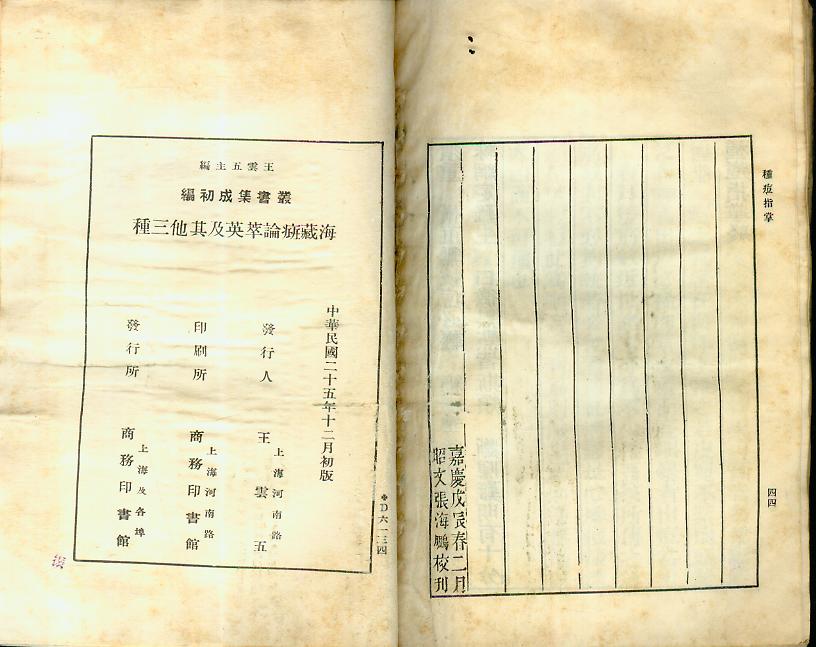 種痘指掌
四四
嘉慶戊辰春二月
昭文張海鵬校刊
王雲五主編
叢書集成初編
海藏癍論萃英及其他三種
中華民國二十五年十二月初版
發行人
上海河南路
王雲五
印刷所
上海河南路
商務印書館
發行所
上海及各埠
商務印書館
*D六一三四